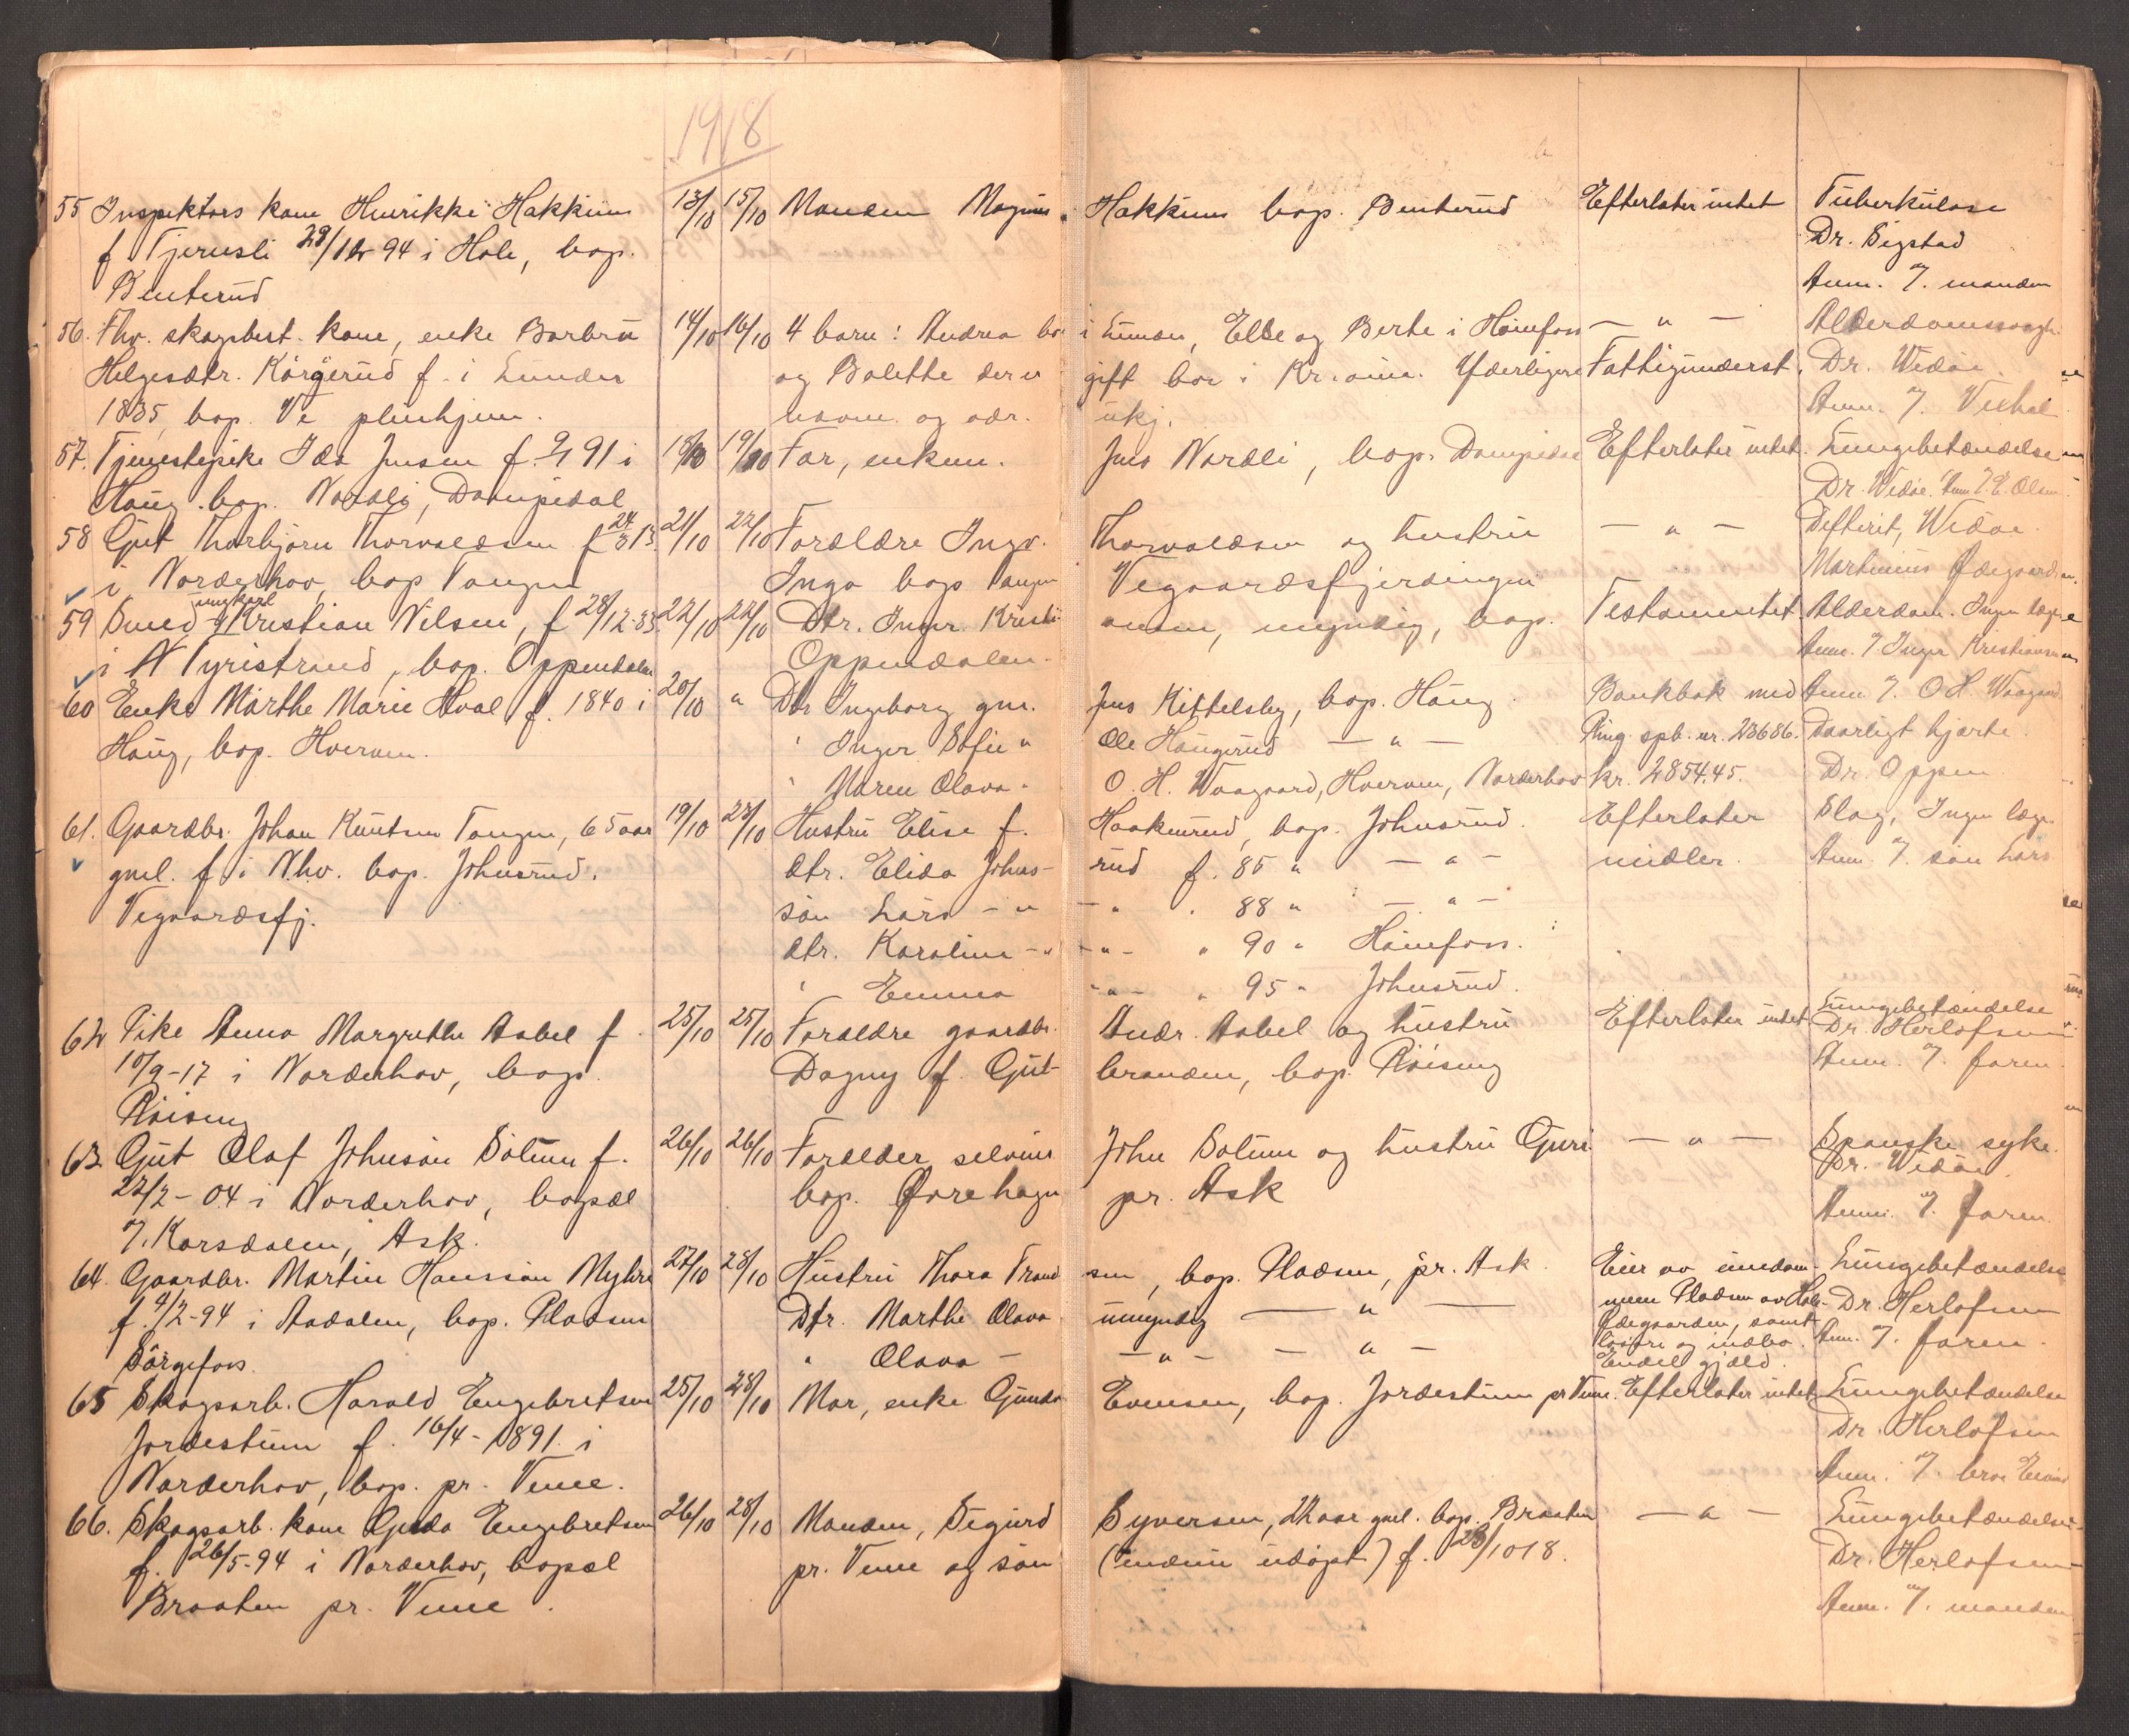 1918
55 Inspektørs kone Henrikke Hakkim 13/10 15/10 Manden Magnus Hakkim bop. Benterud Efterlater intet Tuberkulose
f Tjernsli 29/12 94 i Hole, bop. Dr. Sigstad
Benterud Anm. af manden
56. Fhv. skogbest. kone, enke Barbro 14/10 16/10 4 barn: Andrea bor i Lunder, Else og Berte i Hønefoss — " — Alderdomssvagh.
Helgesdtr. f. i Lunder og Bolette der er gift bor i Kr.ania. Yderligere Fattigunderst. Dr. Widøe
1835, bop. Ve pleiehjem. navne og adr. ukj. Anm. af
57. Tjenestepike Ida Jensen f. 91 i 18/10 19/10 Far, enkem. Jens Nordli, bop. Dampedal Efterlater intet. Lungebetændelse
Haug bop. Nordli, Dampedal Dr. Widøe. Anm. Olsen
58 Gut Thorbjørn Thorvaldsen f 24/3 13. 21/10 22/10 Forældre Ingv. Thorvaldsen og hustru — " — Difterit, Widøe.
i Norderhov, bop Tangen Inga bop Tangen Vegaardsfjerdingen Martinius Ødegaarden.
59 Smed ungkarl Kristian Nilsen, f 28/12-33. 22/10 22/10 Dtr. Inger Kristiansen, myndig, bop. Testamentet. Alderdom. Ingen læge
i N Tyristrand, bop. Oppendalen Oppendalen. Anm. af Inger Kristiansen
60 Enke Marthe Marie Hval f. 1840 i 20/10 " Dtr Ingeborg gm. Jens Kittelsby, bop. Haug Bankbok med Anm af. O H. Waagaard
Haug, bop. Hverven. " Inger Sofie " Ole Haugerud — " — Ring. spb. nr. 23686. Daarligt hjerte.
" Maren Olava " O. H. Waagaard, Hverven, Norderhov kr. 2854.45. Dr. Oppen
61. Gaardbr. Johan Knutsen Tangen, 65 aar 19/10 23/10 Hustru Elise f. Haakenrud, bop. Johnsrud. Efterlater Slag, Ingen læge.
gml. f. i N.hov. bop. Johnsrud. dtr. Elida Johnsrud f. 85 " — " — midler. Anm. af. søn Lars
Vegaardsfj. søn Lars — " — " . 88 " — " —
dtr. Karoline — " — " — " 90 " Hønefoss.
" Emma — " — " 95 " Johnsrud.
62 Pike Anna Margrethe Aabel f. 25/10 25/10 Forældre gaardbr. Andr. Aabel og hustru Efterlater intet Lungebetændelse
10/9-17 i Norderhov, bop. Dagny f. Gulbranden, bop. Røising Dr. Herlofsen
Røising Anm. af. faren.
63. Gut Olaf Johnsøn Solum f. 26/10 26/10 Forælder selveier John Solum og hustru Guri — " — Spanske syke.
22/2-04 i Norderhov, bopæl bop. Ørehagen pr. Ask Dr. Widøe
Korsdalen, Ask. Anm. af. faren
64. Gaardbr. Martin Hanssøn Myhre 27/10 28/10 Hustru Thora bop. Pladsen, pr. Ask. Eier av eiendom- Lungebetændelse
f. 4/2-94 i Aadalen, bop. Pladsen Dtr. Marthe Olava umyndig — " — men Pladsen av Dr. Herlofsen
Sørgefoss. " Olava — — " — — " — samt løsøre og indbo. Anm. af. faren
Endel gjæld.
65 Skogsarb. Harald Engebretsen 25/10 28/10 Mor, enke Gunda Evensen, bop. Jordestuen pr Veme. Efterlater intet Lungebetændelse
Jordestuen f. 16/4-1891 i Dr. Herlofsen
Norderhov, bop. pr. Veme. Anm. af. bror
66. Skogsarb. kone Gjuda Engebretsen 26/10 28/10 Manden, Sigurd Syversen, aar gml. bop. Braaten — " — Lungebetændelse
f. 26/5-94 i Norderhov, bopæl pr. Veme og søn (endnu udøpt) f. 23/1018. Dr. Herlofsen
Braaten pr. Veme. Anm. af. manden